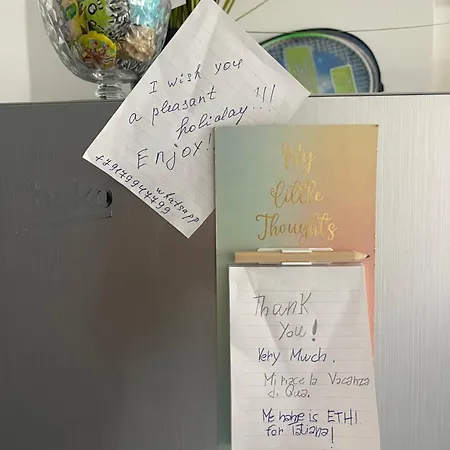 I wish you
a pleasant
holiday!!!
Enjoy!
whatsapp
My
little
Thoughts
Thank
You!
Very Much.
Mi piace la Vacanza
di Qua.
Me name is ETHI
for Tatiana!